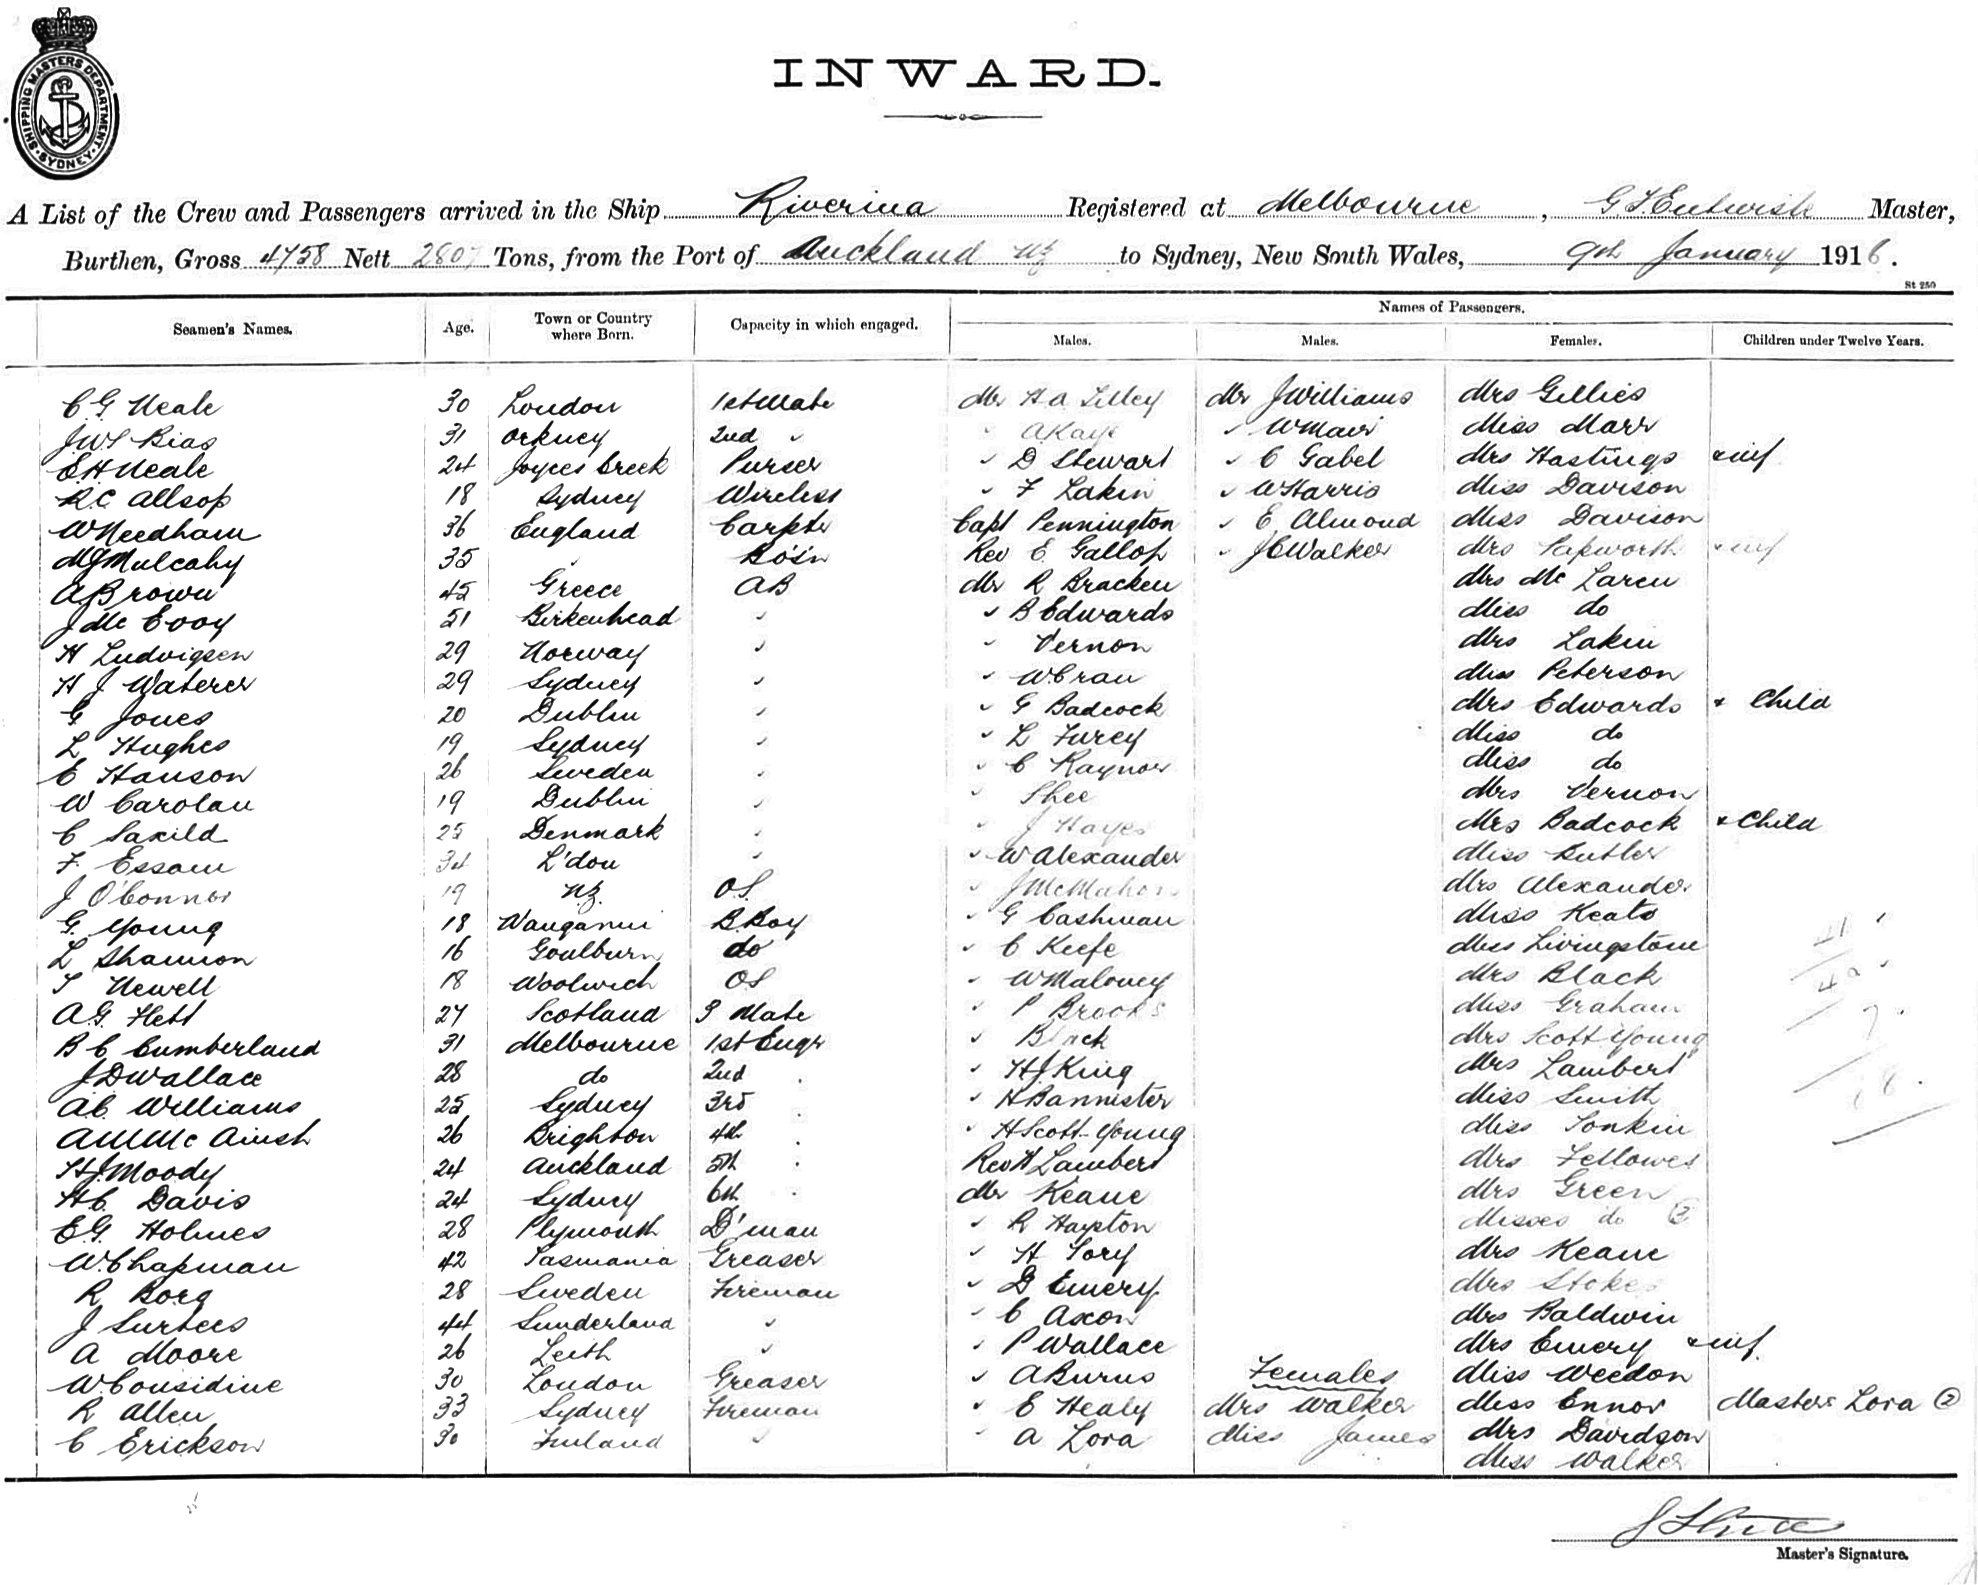 SHIPPING MASTERS DEPARTMENT
SYDNEY
INWARD.
A List of the Crew and Passengers arrived in the Ship Riverina Registered at Melbourne, Master,
Burthen, Gross 4758 Nett 2807 Tons, from the Port of Auckland NZ to Sydney, New South Wales, 9th January 1916.
St 250
Names of Passengers.
Seamen's Names. Age. Town or Country where Born. Capacity in which engaged. Males. Males. Females. Children under Twelve Years.
C G Neale 30 London 1st Mate Mr H A Lilley Mr J Williams Mrs Gillies
J W S Bias 31 Orkney 2nd " " A Kaye " W Mair Miss Marr
E. H Neale 24 Joyces Creek Purser " D Stewart " C Gabel Mrs Hastings & inf
R. C Allsop 18 Sydney Wireless " F Lakin " W Harris Miss Davison
W Needham 36 England Carptr Capt Pennington " E Almond Miss Davison
M J Mulcahy 35 " Bo'sn Rev E Gallop " J C Walker Mrs Papworth & inf
A Brown 45 Greece AB Mr R Bracken Mrs Mc Laren
J Mc Evoy 51 Birkenhead " " B Edwards Miss do
H Ludvigsen 29 Norway " " Vernon Mrs Lakin
H J Waterer 29 Sydney " " W Cran Miss Peterson
G Jones 20 Dublin " " G Badcock Mrs Edwards & Child
L Hughes 19 Sydney " " L Furey Miss do
E Hanson 26 Sweden " " C Raynor Miss do
W Carolan 19 Dublin " " Shee Mrs Vernon
C Saxild 25 Denmark " " J Hayes Mrs Badcock & Child
F. Essam 34 L'don " " W Alexander Miss Butler
J O'Connor 19 NZ. OS. " J McMahon Mrs Alexander
G. Young 18 Wanganui B. Boy " G Cashman Miss Keats
L Shannon 16 Goulburn do " C Keefe Miss Livingstone
T Newell 18 Woolwich OS " W Maloney Mrs Black
A G. Flett 27 Scotland 3 Mate " P Brooks Miss Graham
B C Cumberland 31 Melbourne 1st Engr " Black Mrs Scott Young
J D Wallace 28 do 2nd " " H J King Mrs Lambert
A C. Williams 25 Sydney 3rd " " H Bannister Miss Smith
A M Mc Ainsh 26 Brighton 4th " " H Scott-Young Miss Tonkin
H J Moody 24 Auckland 5th " Rev H Lambert Mrs Fellowes
H C. Davis 24 Sydney 6th " Mr Keane Mrs Green
E G. Holmes 28 Plymouth D'man " R Hayston Misses do (2)
W. Chapman 42 Tasmania Greaser " H Tory Mrs Keane
R Borg 28 Sweden Fireman " D Emery Mrs Stokes
J Surtees 44 Sunderland " " C Axon Mrs Baldwin
A Moore 26 Leith " " P Wallace Mrs Emery & inf.
W. Considine 30 London Greaser " A Burns Females Miss Weedon
R Allen 33 Sydney Fireman " E Healy Mrs Walker Miss Ennor Masters Lora (2)
C Erickson 30 Finland " " A Lora Miss James Mrs Davidson
Miss Walker
Master's Signature.